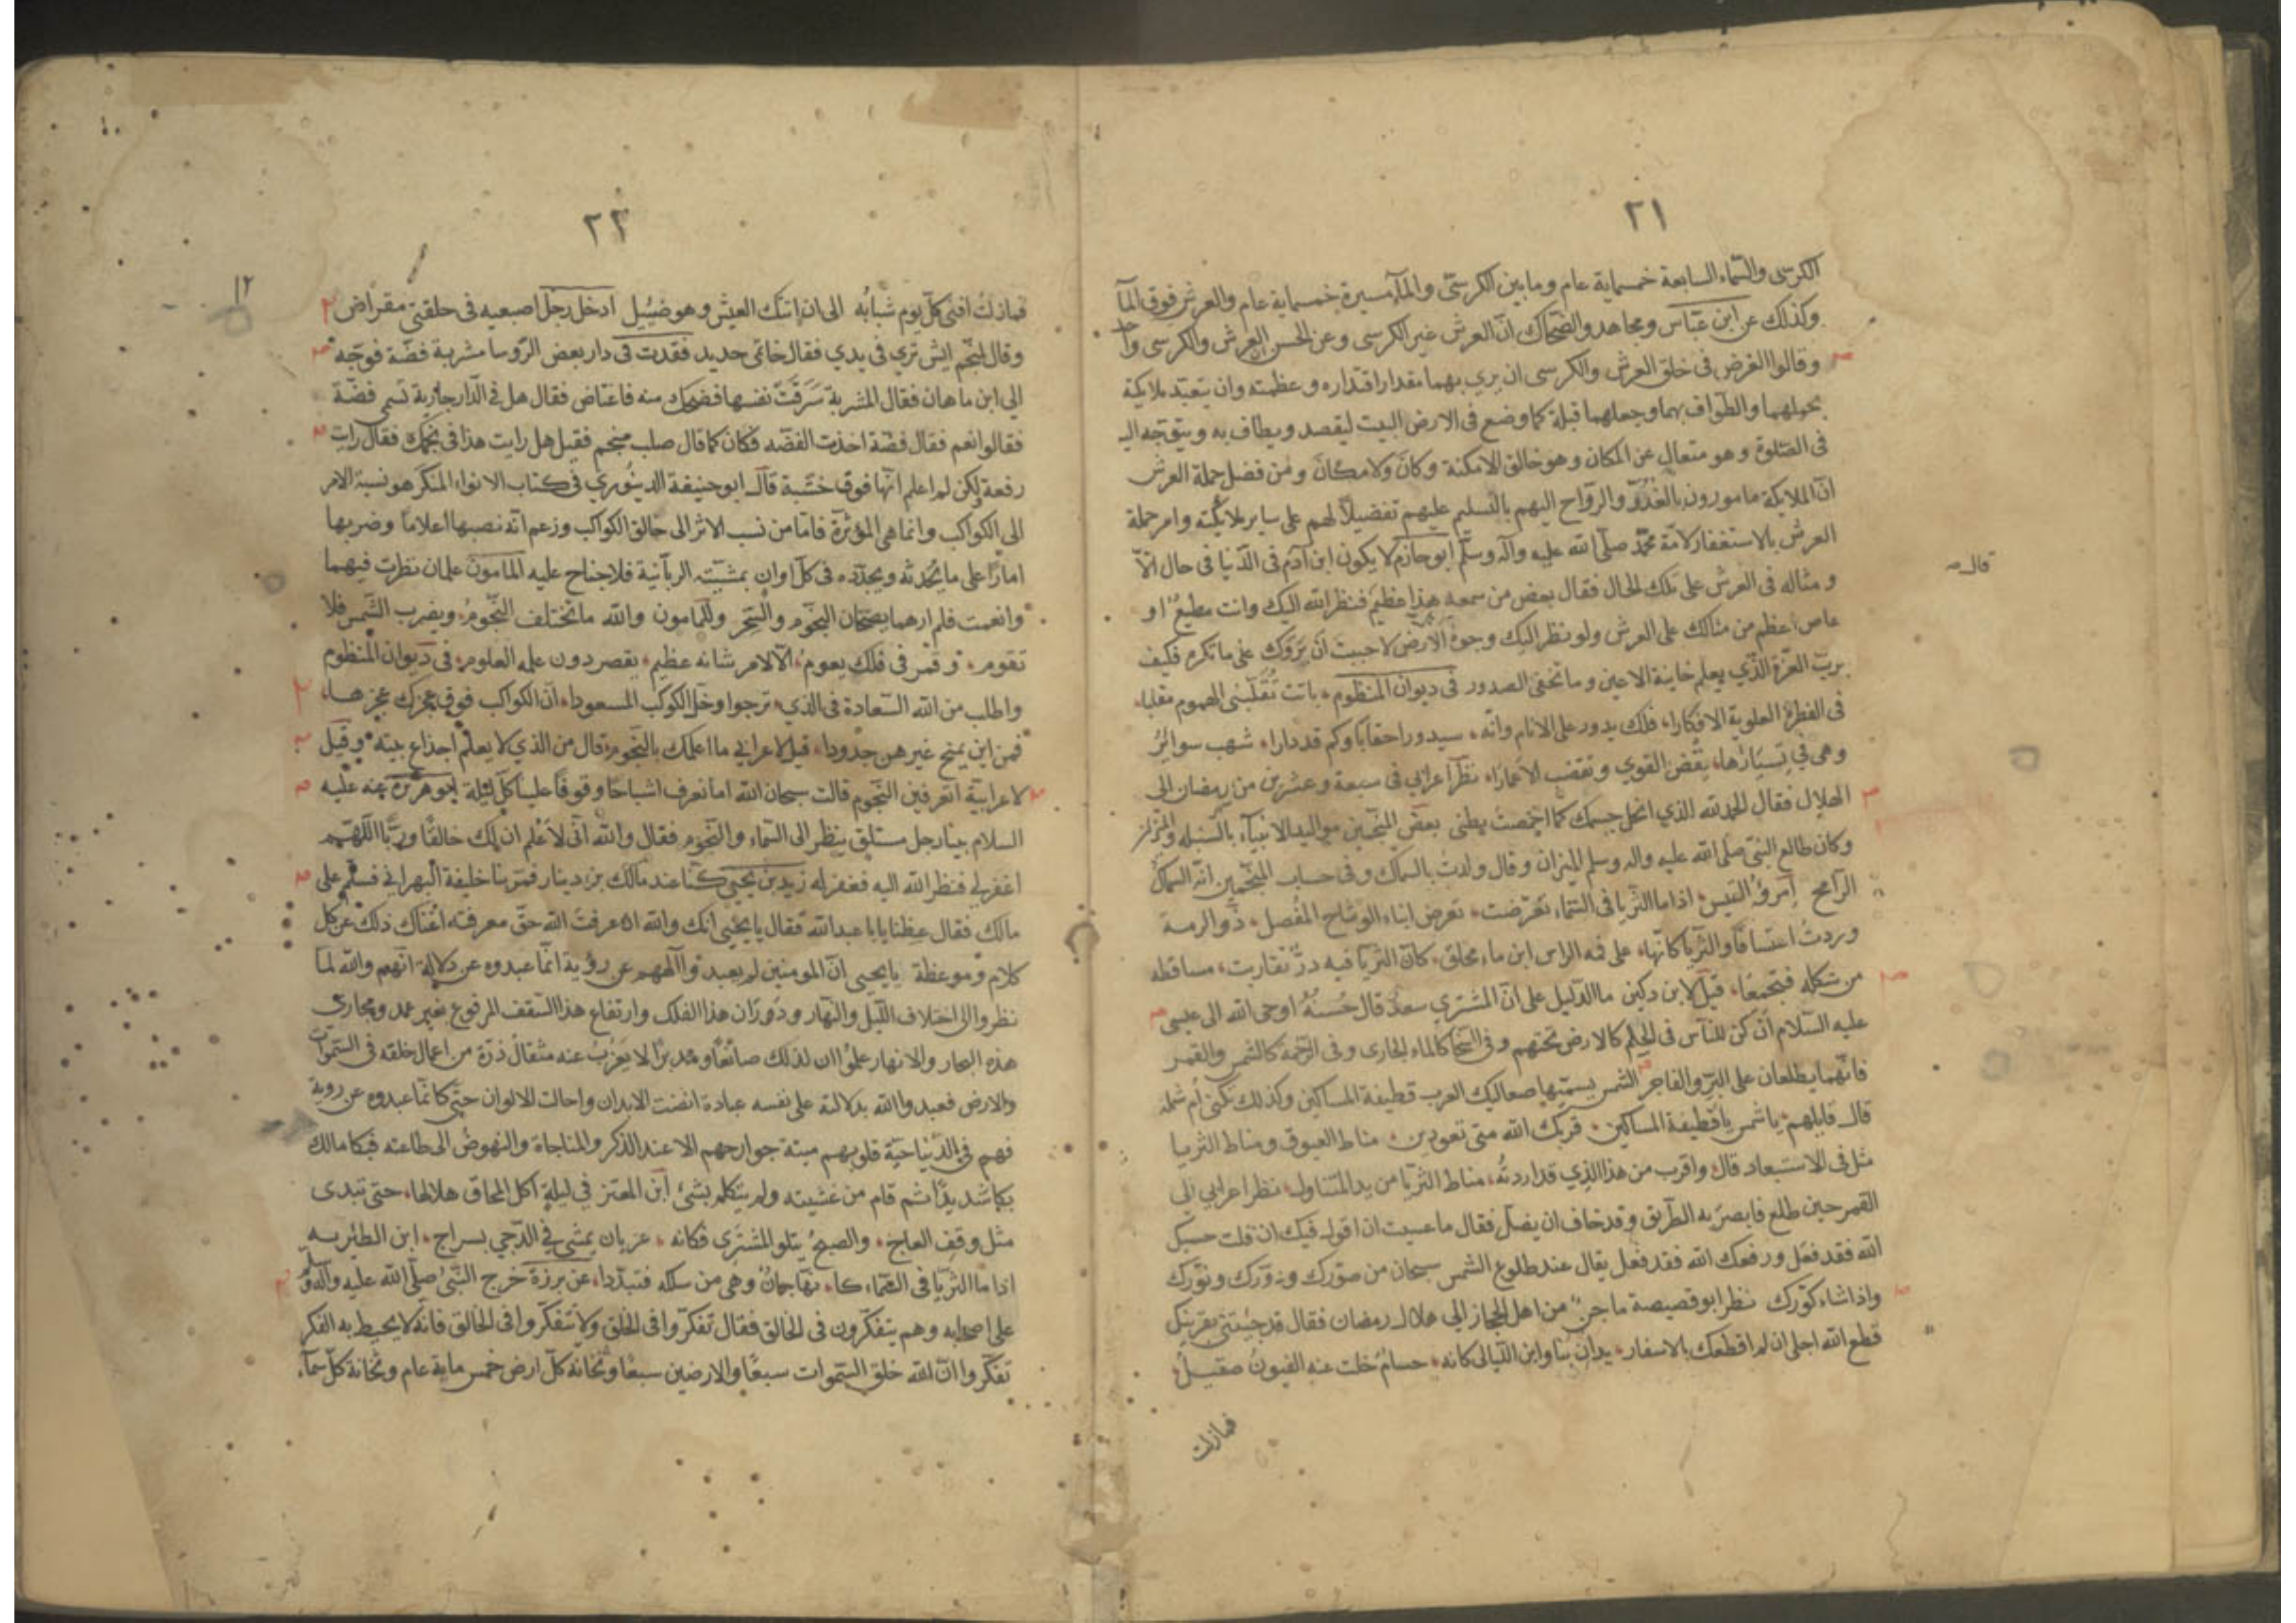 ٢١
الكرسى والسّماء السابعة خمسماية عام وما بين الكرسىّ والمآ مسيرة خمسماية عام والعرش فوق المآ
وكذلك عن ابن عبّاس ومجاهد والضحّاك انّ العرش غير الكرسى وعن الحسن العرش والكرسى واحد
وقالوا الغرض فى خلق العرش والكرسى ان يرى بهما مقدار اقتداره وعظمته وان يتعبد ملايكة
بحملهما والطواف بهما وجعلهما قبلة كما وضع فى الارض البيت ليقصد ويطاف به ويتوجه اليه
فى الصّلوة وهو متعال عن المكان وهو خالق الامكنة وكان ولا مكان ومن فضل حملة العرش
انّ الملايكة مامورون بالغدوّ والرّواح اليهم بالتسليم عليهم تفضيلاً لهم على ساير ملايكته وامر حملة
العرش بالاستغفار لامّة محمّد صلّى الله عليه وآله وسلّم ابو حازم لا يكون ابن آدم فى الدّنيا فى حال الّا
ومثاله فى العرش على تلك الحال فقال بعض من سمعه هذا عظيم فنظر الله اليك وانت مطيع او
عاص اعظم من مثالك على العرش ولو نظر اليك وجوه الارض لاحببت ان يروك على ما تكره فكيف
بربّ العزّة الذي يعلم خاينة الاعين وما تخفى الصدور فى ديوان المنظوم باتت تقلّبنى الهموم مقلبا
فى الفطرة العلوية الافكارا، فلك يدور على الانام وانّه، سيدور احقابا وكم قد دارا، شهب سوائرُ
وهى فى تسيارها، تقض القوي وتقضب الاعمارا، نظر اعرابي فى سبعة وعشرين من رمضان الى
الهلال فقال الحمد لله الذي انحل جسمك كما اخمصت بطنى بعض المنجمين مواليد الانبيآء بالسنبله والميزان
وكان طالع النبيّ صلى الله عليه واله وسلم الميزان وقال ولدت بالسماك وفى حساب المنجمين انّه السماك
الرامح امرؤ القيس اذا ما الثريا فى السّماء تعرّضت، تعرض اثناء الوشاح المفصل، ذو الرمة
وردتُ اعتسافًا والثريا كانّها، على قمة الراس ابن ماء محلق، كان الثريا فيه درٌّ تقاربت، مساقطه
من شكله فتجمعا، قيل لابن دكين ما الدليل على ان المشتري سعد قال حُسنُهُ اوحى الله الى عيسى
عليه السّلام ان كن للنّاس فى الحلم كالارض تحتهم وفى السّخا كالماء الجارى وفى الرّحمة كالشمس والقمر
فانّهما يطلعان على البرّ والفاجر الشمس يسمّيها صعاليك العرب قطيفة المساكين وكذلك تكنى ام شملة
قال قايلهم يا شمس يا قطيفة المساكين، قربك الله متى تعودين، مناط العيوق ومناط الثريا
مثل فى الاستبعاد قال واقرب من هذا الذي قد اردتُه، مناط الثريا من يد المتناول، نظر اعرابي الى
القمر حين طلع فابصر به الطريق وقد خاف ان يضل فقال ما عسيت ان اقول فيك ان قلت حسنك
الله فقد فعل ورفعك الله فقد فعل يقال عند طلوع الشمس سبحان من صوّرك ودوّرك ونوّرك
واذا شاء كوّرك نظر ابو قصيصة ماجن من اهل الحجاز الى هلال رمضان فقال قد جئتنى بقرنيك
قطع الله اجلى ان لم اقطعك بالاسفار، بدا بنا وابن الليالى كانه، حسامٌ جلت عنه القيونُ صقيلُ
فمازلت
قال
٢٢
١٢
فمازلتُ افنى كلّ يوم شبابُه الى ان اتتك العيش وهو ضئيل ادخل رجل اصبعيه فى حلقتى مقراض
وقال لمنجم ايش تري في يدي فقال خاتمي حديد فقدت فى دار بعض الرّوسا مشربة فضّة فوجّه
الى ابن ماهان فقال المشربة سَرَقَتْ نفسها فضحك منه فاغتاض فقال هل فى الدّار جارية تسمى فضّة
فقالوا نعم فقال فضّة اخذت الفضّه فكان كما قال صلب منجم فقيل هل رايت هذا فى نجمك فقال رايت
رفعة لكن لم اعلم انّها فوق خشبة قال ابو حنيفة الدينوري فى كتاب الانواء المنكر هو نسبة الامر
الى الكواكب وانما هى المؤثرة فامّا من نسب الاثر الى خالق الكواكب وزعم انّه نصبها اعلاما وضربها
امارًا على ما يُحدثه ويجدّده فى كلّ اوان بمشيّته الربّانية فلا جناح عليه المامون علمان نظرت فيهما
وانعمت فلم ارهما يصحّان النجوم والسّحر وللمامون والله ما تختلف النّجوم، ويضرب الشّمس فلا
تقوم، وقمر فى فلك يعوم، الّا لامر شانه عظيم، يقصر دون علمه العلوم، فى ديوان المنظوم
واطلب من الله السّعادة فى الذي، ترجوا وخلّ الكوكب المسعودا، انّ الكواكب فوق عجزك عجزها،
فمن اين يمنح غيرهن جدودا، قيل لاعرابي ما اعلمك بالنّجوم، قال من الذي لا يعلم اجذاع بيته، وقيل
لاعرابيّة اتعرفين النّجوم قالت سبحان الله اما نعرف اشباحًا وقوفًا علينا كلّ ليلة ابو هريرة عنه عليه
السلام بينا رجل مستلق ينظر الى السّماء والنّجوم فقال والله انّى لاعلم ان لك خالقًا وربًّا اللّهمّ
اغفر لي فنظر الله اليه فغفر له زيد بن يحيى كنّا عند مالك بن دينار فمرّ بنا خليفة البهرانى فسلّم على
مالك فقال عظنا يا با عبدالله فقال يا يحيى انك والله ان عرفت الله حقّ معرفته اغناك ذلك عن كل
كلام وموعظة يا يحيى انّ المومنين لم يعبدوا الههم عن رؤية انّما عبدوه عن دلالة انّهم والله لمّا
نظروا الى اختلاف الليل والنّهار ودوران هذا الفلك وارتفاع هذا السّقف المرفوع بغير عمد ومجارى
هذه البحار والانهار علموا ان لذلك صانعًا ومدبّرًا لا يعزبُ عنه مثقال ذرّة من اعمال خلقه فى السّموات
والارض فعبدوا الله بدلالته على نفسه عبادة انضت الابدان واحالت الالوان حتى كانّما عبدوه عن روية
فهم فى الدّنيا حيّة قلوبهم ميتة جوارحهم الا عند الذكر والمناجاة والنهوض الى طاعته فبكا مالك
بكا شديدًا ثم قام من عشيته ولم يتكلم بشئ ابن المعتز فى ليلة اكل المحاق هلالها، حتى تبدى
مثل وقف العاج، والصبحُ يتلو المشترى فكانه، عريان يمشى فى الدّجى بسراج، ابن الطثرية
اذا ما الثريّا فى السّماء كا، نها جمانٌ وهى من سلكه فتبدّدا، عن برزة خرج النّبىّ صلّى الله عليه وآله وسلم
على اصحابه وهم يتفكّرون فى الخالق فقال تفكّروا فى الخلق ولا تتفكّروا فى الخالق فانّه لا يحيط به الفكر
تفكّروا انّ الله خلق السّموات سبعًا والارضين سبعًا وثخانة كلّ ارض خمس ماية عام وثخانة كلّ سمآء